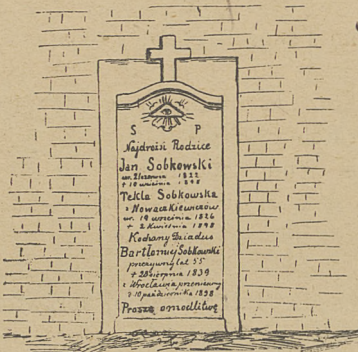 S P
Najdrożsi Rodzice
Jan Sobkowski
ur. 21 czerwca 1822
† 10 września 1898
Tekla Sobkowska
z Nowaczkiewiczów
ur. 19 września 1826
† 2 kwietnia 1898
Kochany Dziadus
Bartłomiej Sobkowski
przeżywszy lat 55
† 28 sierpnia 1839
z Wrocławia przeniesiony
d. 10 października 1898
Proszą o modlitwę